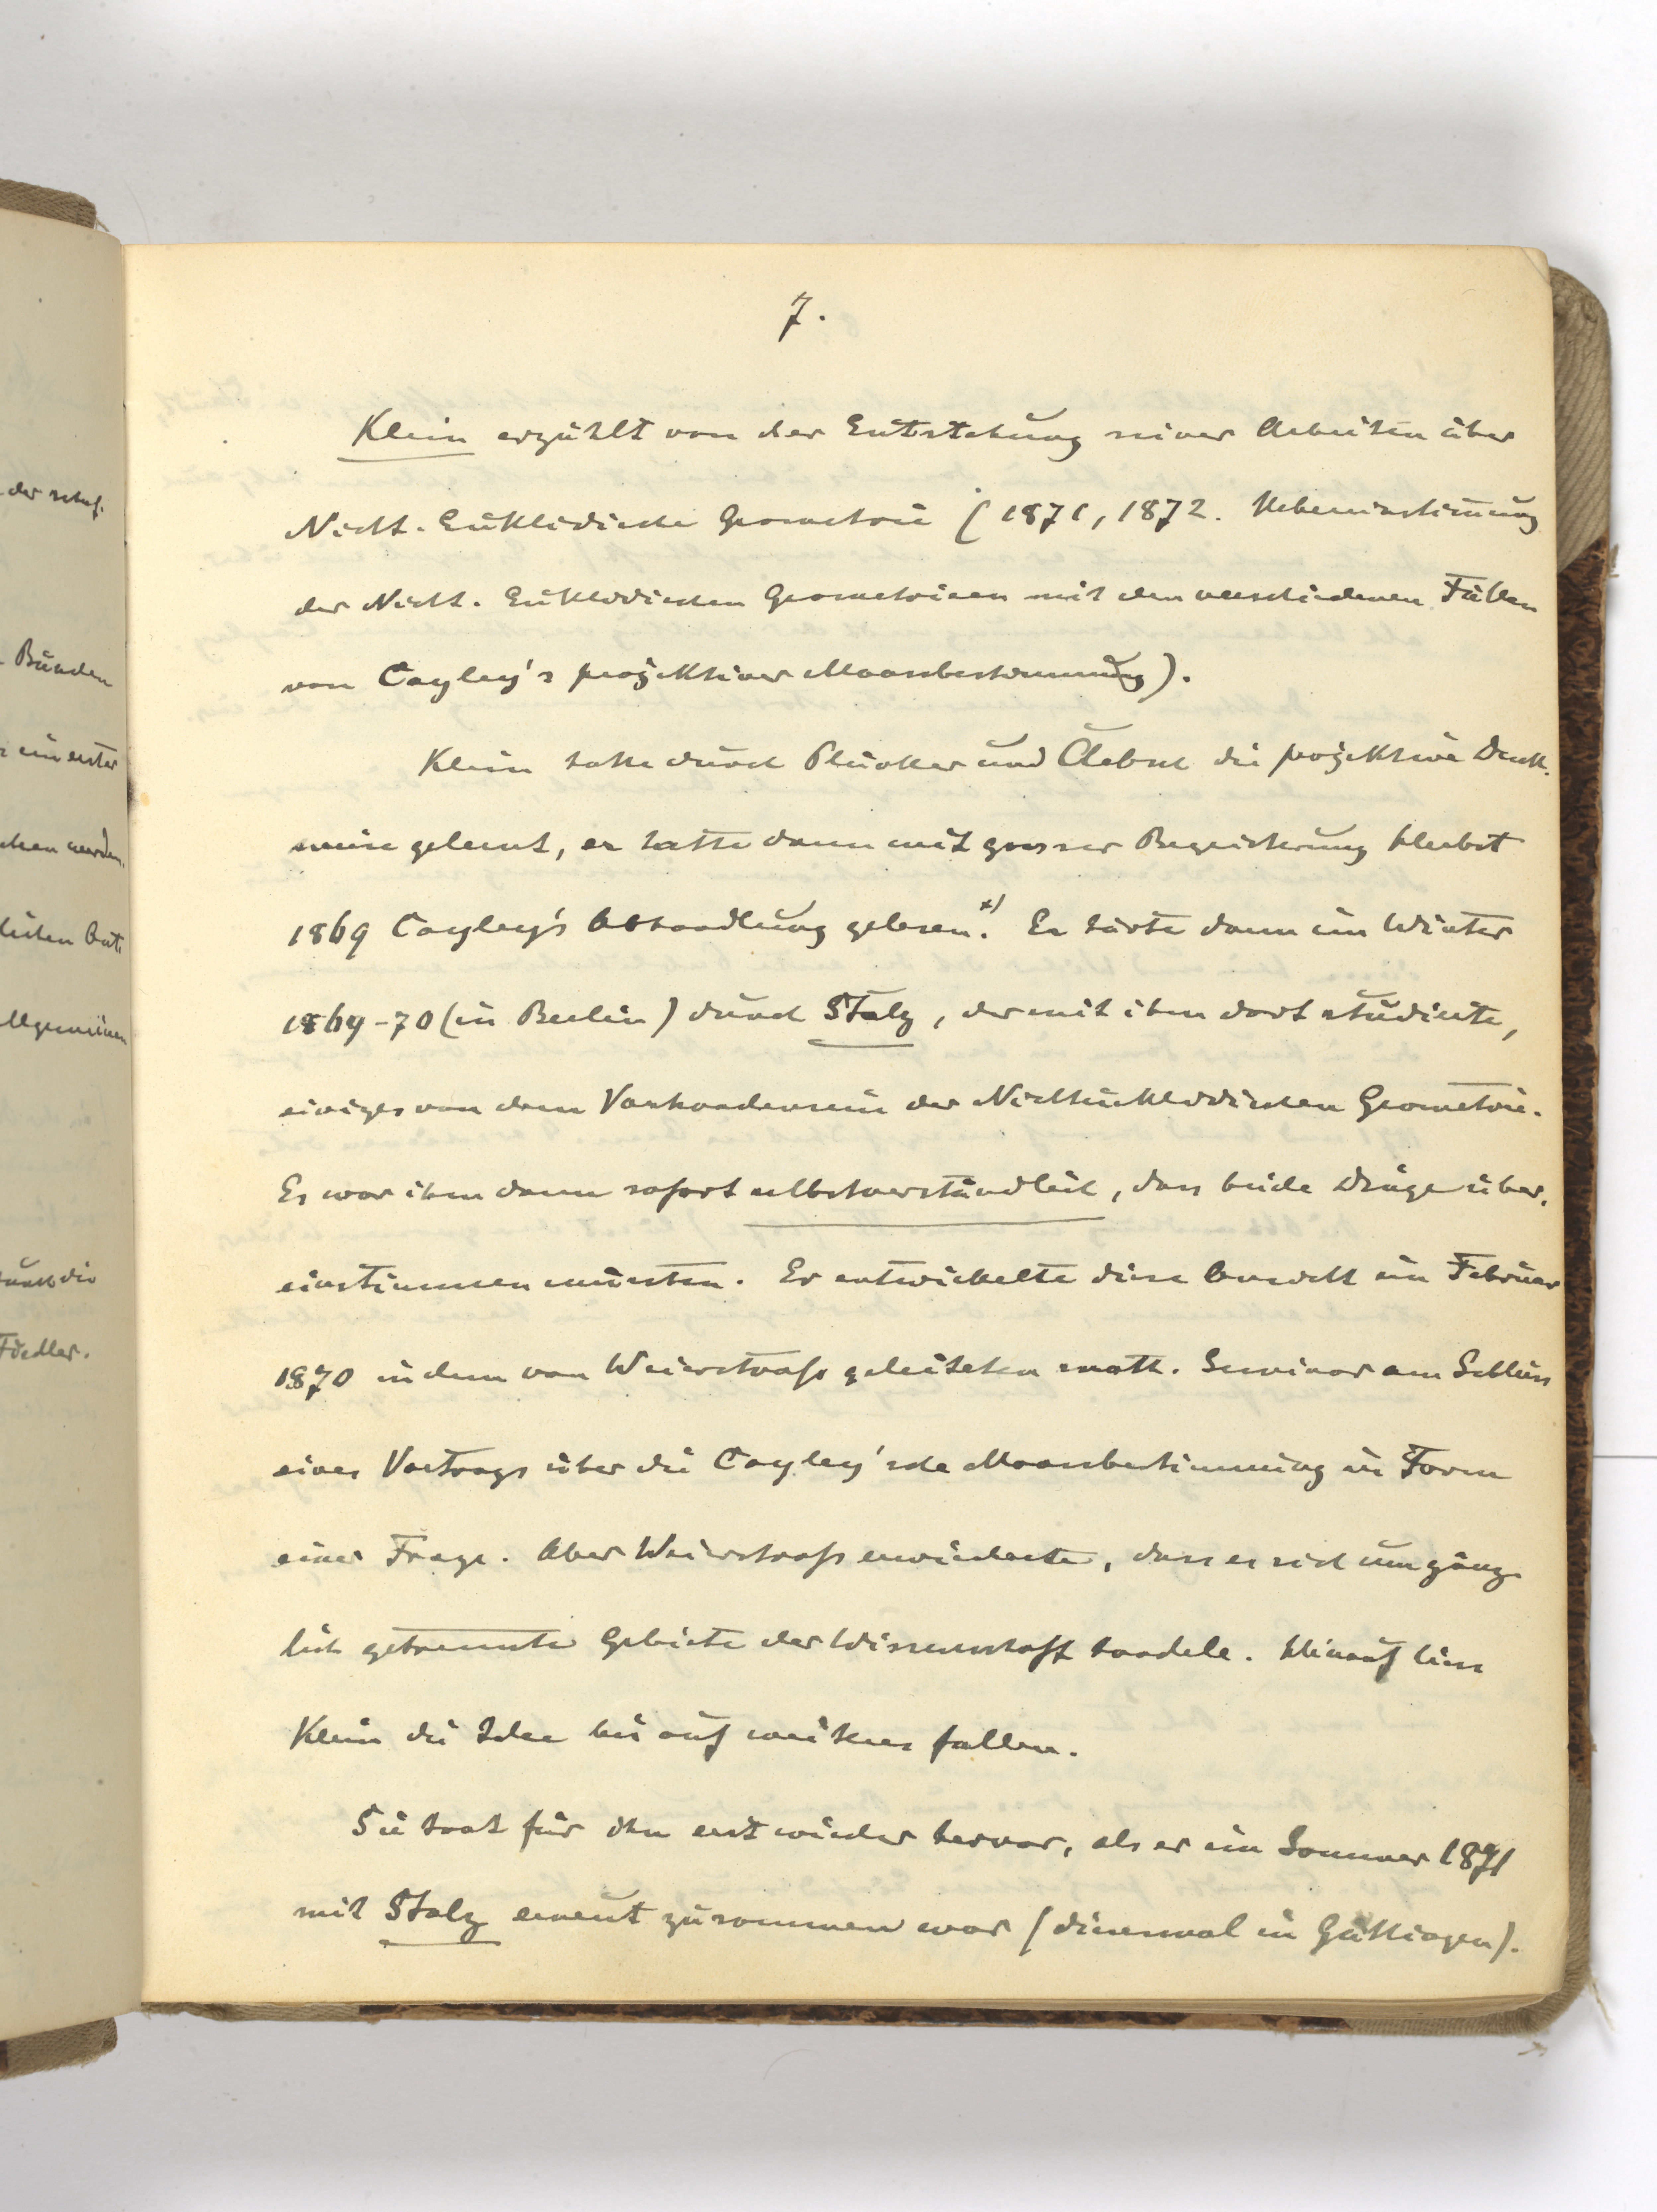 7.
Klein erzählt von der Entstehung seiner Arbeiten über
Nicht-Euklidische Geometrie (1871, 1872. Uebereinstimmung
der Nicht-Euklidischen Geometrieen mit den verschiedenen Fällen
von Cayley's projektiver Maassbestimmung).
Klein hatte durch Plücker und Clebsch die projektive Denk-
weise gelernt, er hatte dann mit grosser Begeisterung Herbst
1869 Cayley's Abhandlung gelesen.*) Er hörte dann im Winter
1869-70 (in Berlin) durch Stolz, der mit ihm dort studierte,
einiges von dem Vorhandensein der Nichteuklidischen Geometrie.
Es war ihm dann sofort selbstverständlich, dass beide Dinge über-
einstimmen müssten. Er entwickelte diese Ansicht im Februar
1870 in dem von Weierstraß geleiteten math. Seminar am Schluss
eines Vortrags über die Cayley'sche Maassbestimmung in Form
einer Frage. Aber Weierstraß erwiederte, dass es sich um gänz-
lich getrennte Gebiete der Wissenschaft handele. Hierauf liess
Klein die Idee bis auf weiteres fallen.
Sie trat für ihn erst wieder hervor, als er im Sommer 1871
mit Stolz erneut zusammen war (diesmal in Göttingen).
der schaf.
Bänden
ein erster
chen werden.
llgemeinen
durch die
Fiedler.